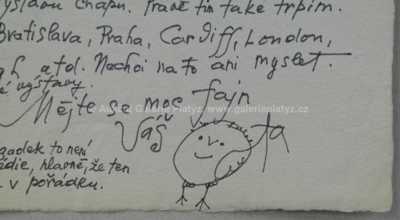 chápu. Právě tím také trpím.
Bratislava, Praha, Cardiff, London,
atd. Nechci na to ani myslet.
výstavy.
Mějte se moc fajn
Váš
to není
hlavně, že ten
v pořádku.
www.galerieplatyz.cz